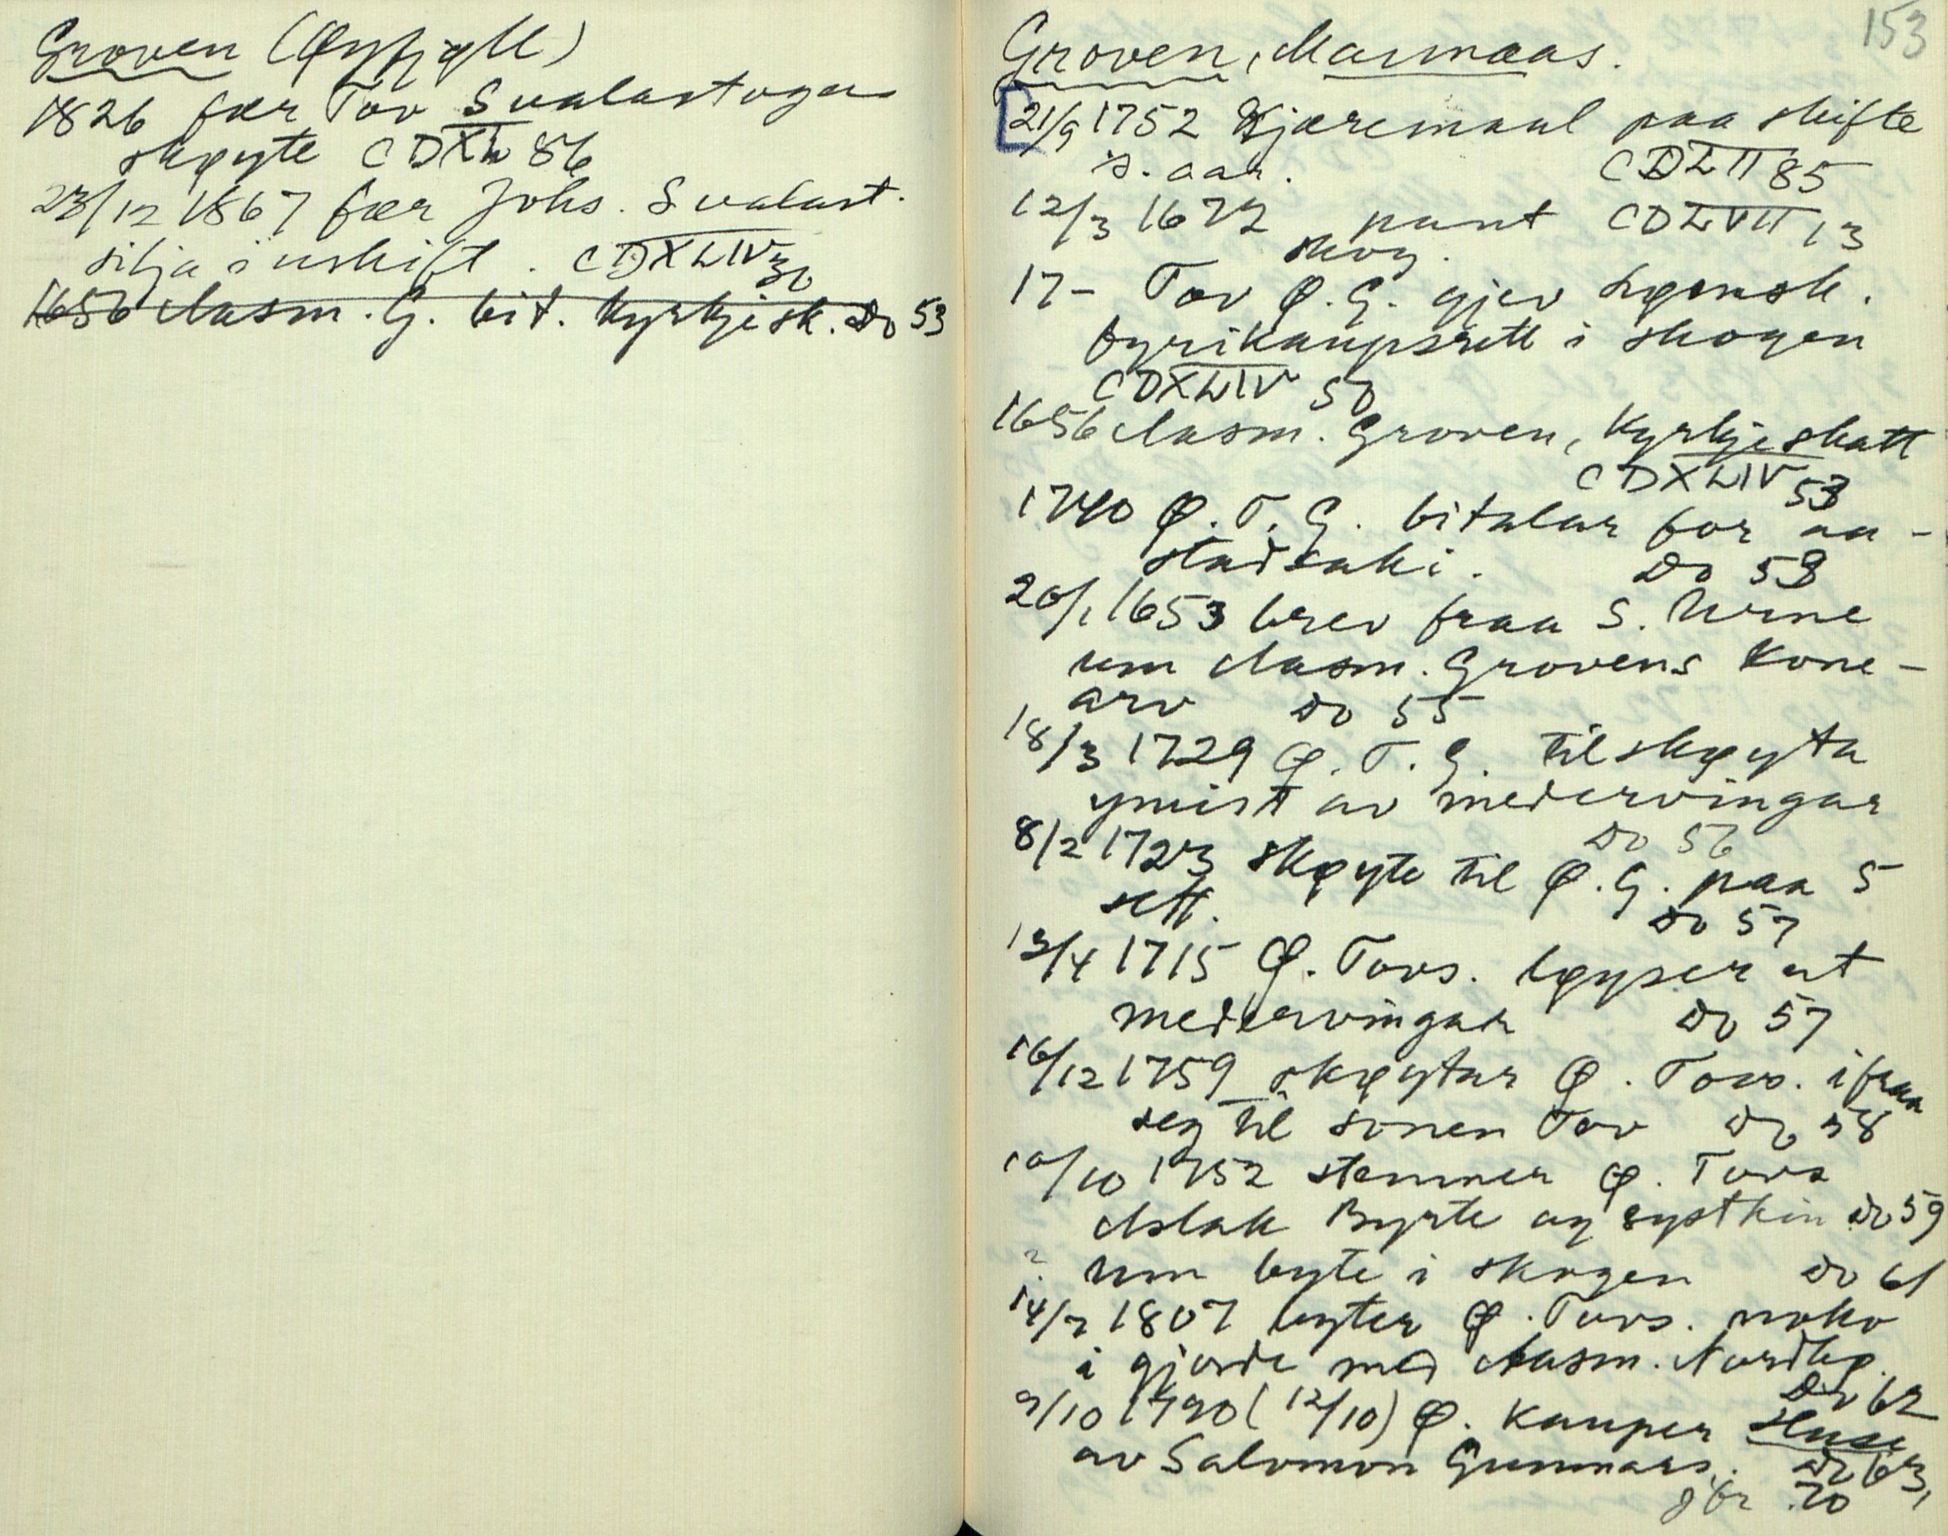 Groven (Øyfjell)
1826 fær Tov Svalastoga
skøyte CDXL 86
23/12 1867 fær Johs. Svalast.
silja i uskift. CDXLIV 30
1656 Aasm. G. bit. kyrkjesk. Do 53
153
Groven, Marmaas.
21/9 1752 Kjæremaal paa skifte
s. aar. CDLII 85
12/3 1672 pant CDLVII 13
skog.
17- Tov Ø. G. gjev Løensk.
fyrikaupsrett i skogen
CDXLIV 50
1656 Aasm. Groven, Kyrkjeskatt
CDXLIV 53
1740 Ø. T. G. bitalar for aa-
stadsaki. Do 53
20/1 1653 brev fraa S. Urne
um Aasm. Grovens Kone-
arv Do 55
18/3 1729 Ø. T. G. tilskøyta
ymist av medervingar
Do 56
8/2 1723 skøyte til Ø. G. paa 5
sett. Do 57
13/4 1715 Ø. Tovs. løyser ut
medervingar Do 57
16/12 1759 skøytar Ø. Tovs. ifraa
seg til sonen Tov Do 58
10/10 1752 stemner Ø. Tovs
Aslak Byrte og systkin Do 59
? um byte i skogen Do 61
14/7 1807 byter Ø. Tovs. noko
i gjerde med Aasm. Nordbø.
Do 62
9/10 1790 (12/10) Ø. Kauper Huse
av Salomon Gunnars. Do 63,
jfr 70